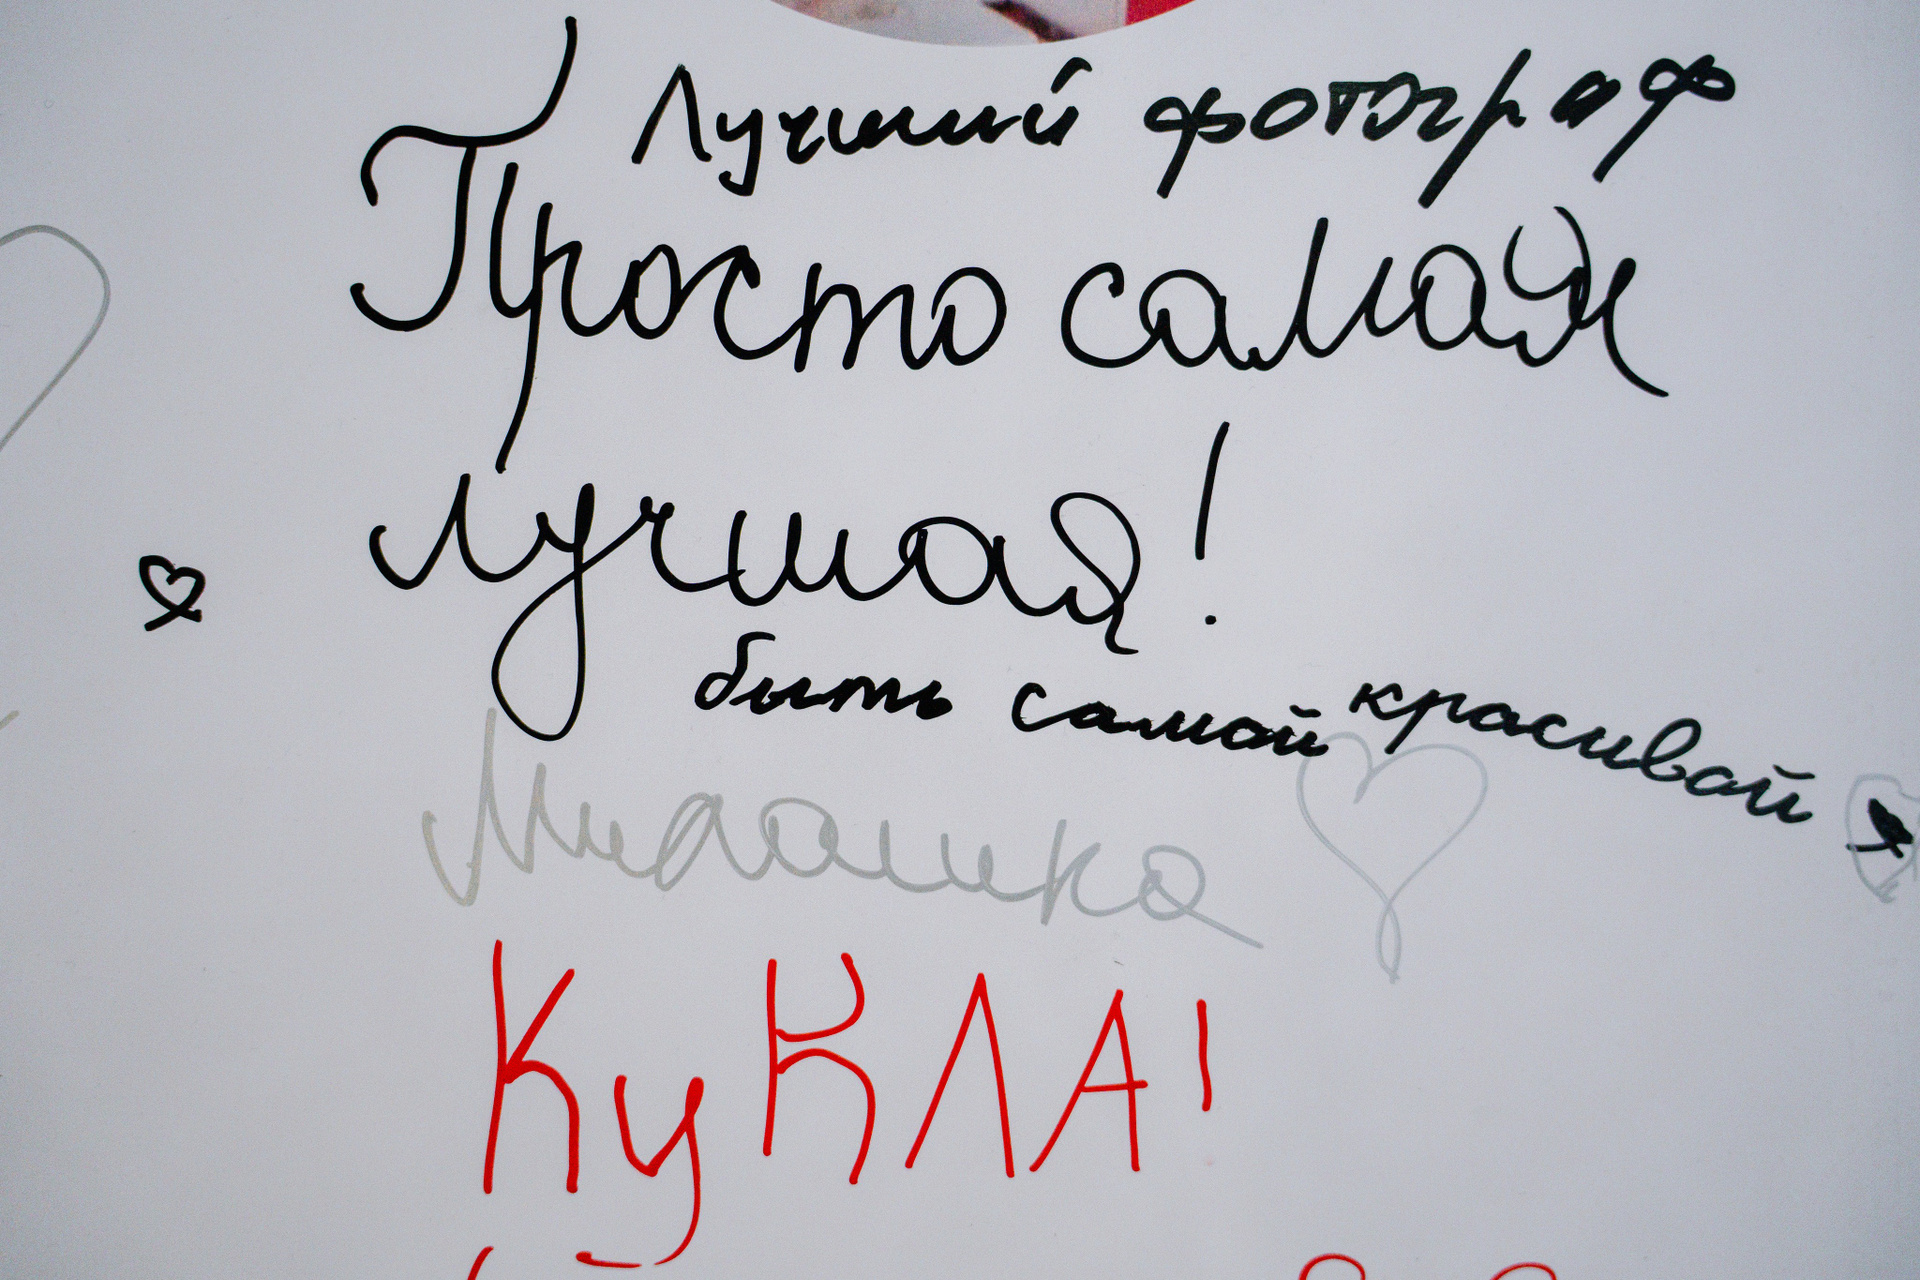 Лучший фотограф
Просто самая
лучшая!
быть самой красивой
Милашка
КуКЛА!